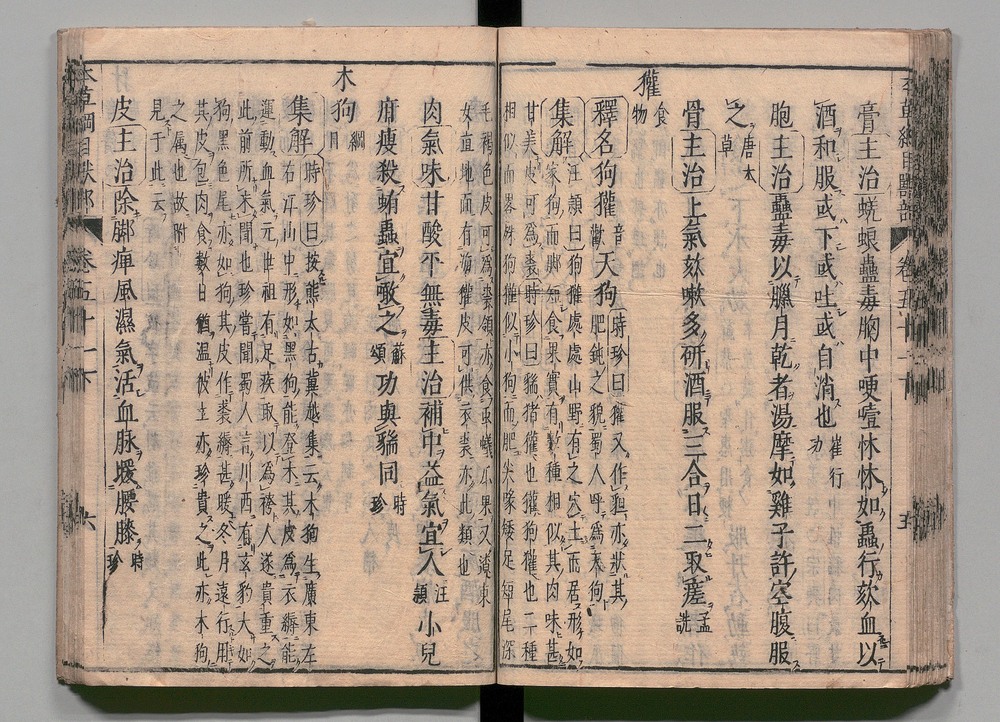 膏主治蜣蜋蠱毒胸中哽噎怵怵如蟲行欬血以
酒和服或下或吐或自消也崔行功
胞主治蠱毒以臘月乾者湯摩如雞子許空腹服
之唐本草
骨主治上氣欬嗽多研酒服三合日二取瘥孟詵
獾食物
釋名狗獾音歡天狗時珍曰獾又作貆亦狀其
肥鈍之貌蜀人呼為天狗
集解汪頴曰狗獾處處山野有之穴土而居形如
家狗而脚短食果實有數種相似其肉味甚
甘美皮可為裘時珍曰貒猪獾也獾狗獾也二種
相似而畧殊狗獾似小狗而肥尖喙矮足短尾深
毛褐色皮可為裘領亦食虫蟻瓜果又遼東
女直地面有海獾皮可供衣裘亦此類也
肉氣味甘酸平無毒主治補中益氣宜人汪頴小兒
疳瘦殺蛔蟲宜噉之蘇頌功與貒同時珍
木狗綱目
集解時珍曰按熊太古冀越集云木狗生廣東左
右江山中形如黑狗能登木其皮為衣褥能
運動血氣元世祖有足疾取以為袴人遂貴重之
此前所未聞也珍嘗聞蜀人言川西有玄豹大如
狗黑色尾亦如狗其皮作裘褥甚暖冬月遠行用
其皮包肉食數日猶温彼土亦珍貴之此亦木狗
之属也故附
見于此云
皮主治除脚痺風濕氣活血脉煖腰膝時珍
本草綱目獸部 卷五十一下 六